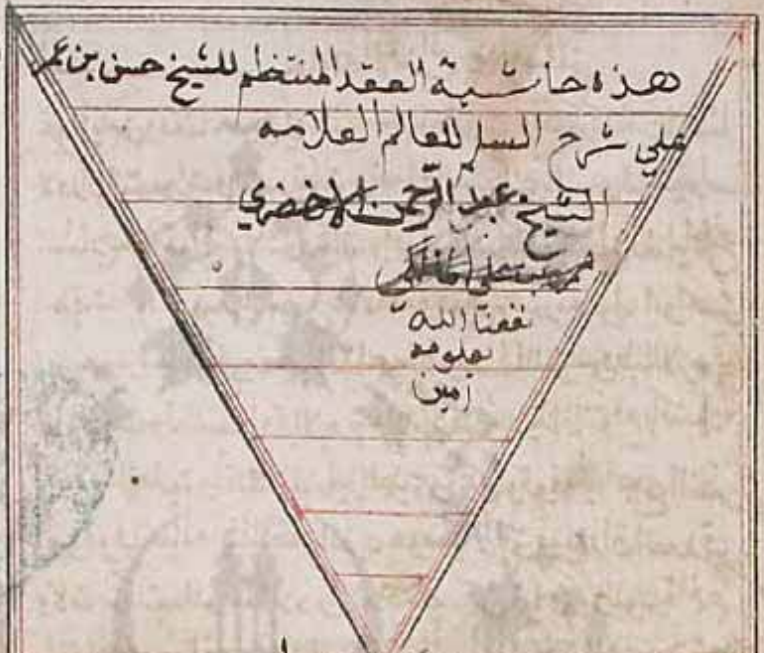 هذه حاشية العقد المنتظم للشيخ حسن بن عمر
علي شرح السلم للعالم العلامه
الشيخ عبد الرحمن الاخضري
نفعنا الله
بعلومه
امين